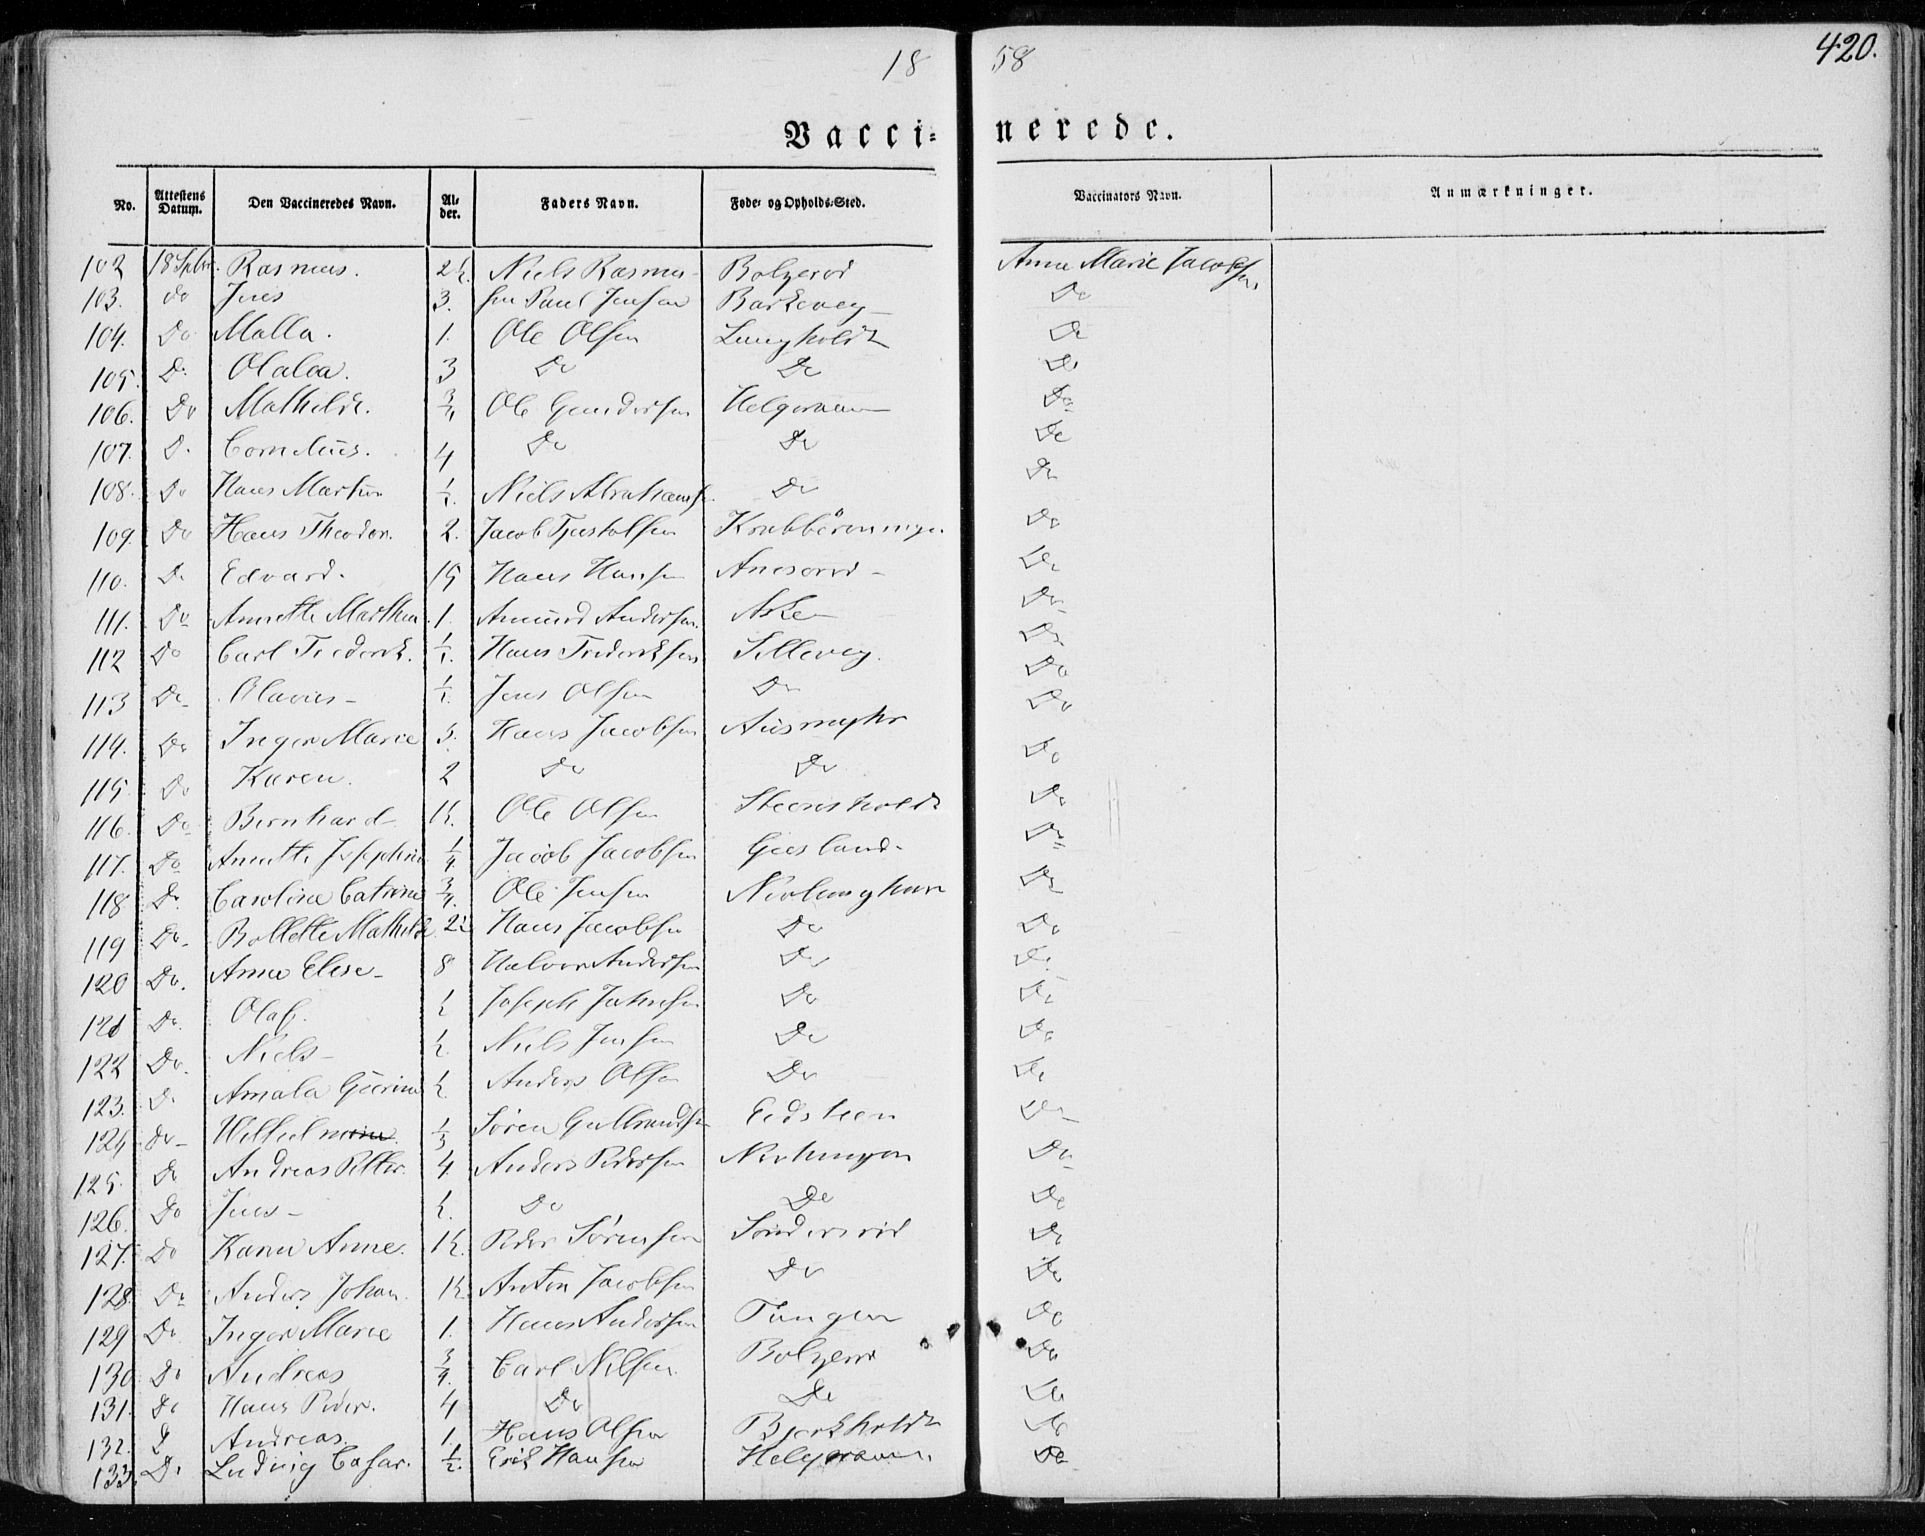 18 58 420.
Vacci- nerede.
No. Attestens Datum. Den Vaccineredes Navn. Al- der. Faders Navn. Føde- og Opholds-Sted. Vaccinators Navn. Anmærkninger.
102 18 Sptbr. Rasmus. Niels Rasmus- Bolzerød Anne Marie Jacobsen
103. do Jens 3. sen Paul Jensen Barkevey Do
104. Do Malla. 1. Ole Olsen Langholdt Do
105. Do Olalea. 3 Do Do Do
106. Do Mathilde. 3/4 Ole Gundersen Helgeraaen Do
107. Do Cornelius. 4 Do Do Do
108. Do Hans Martin Niels Abrahams. Do Do
109. Do Hans Theodor. 2. Jacob Tjostolfsen Do
110. Do Edvard. 15 Hans Hansen Do
111. Do Annette Marthea 1. Amund Andersen. Aske Do
112 Do Carl Frederik. Hans Frederiksen Sillevey. Do
113 Do Olavus- Jens Olsen Do Do
114. Do Inger Marie 3. Hans Jacobsen Do
115 Do Karen. 2 Do Do Do
116. Do Bernhard Ole Olsen Steensholdt Do
117. Do Annette Josephine 1/4 Jacob Jacobsen Do
118 Do Caroline Catrine 3/4. Ole Jensen Do
119 Do Bollette Mathilde Hans Jacobsen Do Do
120 Do. Anne Elise- 8 Halvor Andersen Do Do
121 Do. Olaf. Joseph Johnsen Do Do
122 Do. Niels- Niels Jensen Do Do
123. Do Amala Gurine Anders Olsen Do Do
124 Do- Søren Gulbrandsen Eidsteen Do
125. Do Andreas Petter. 4 Anders Pedersen Nevlungen Do
126. Do Jens- Do Do Do
127. Do Karen Anne. Peder Sørensen Søndersrød Do
128. Do Anders Johan. Anton Jacobsen Do Do
129 Do Inger Marie 1. Hans Andersen Tangen Do
130 Do Andreas 3/4. Carl Nilsen. Bolzerø Do
131. Do Hans Peder. 4 Do Do Do
132. D Andreas. 1. Hans Olsen Bjerkholdt Do
133. Do Ludvig Casar. 1/2. Erik Hansen Helgeraaen. Do